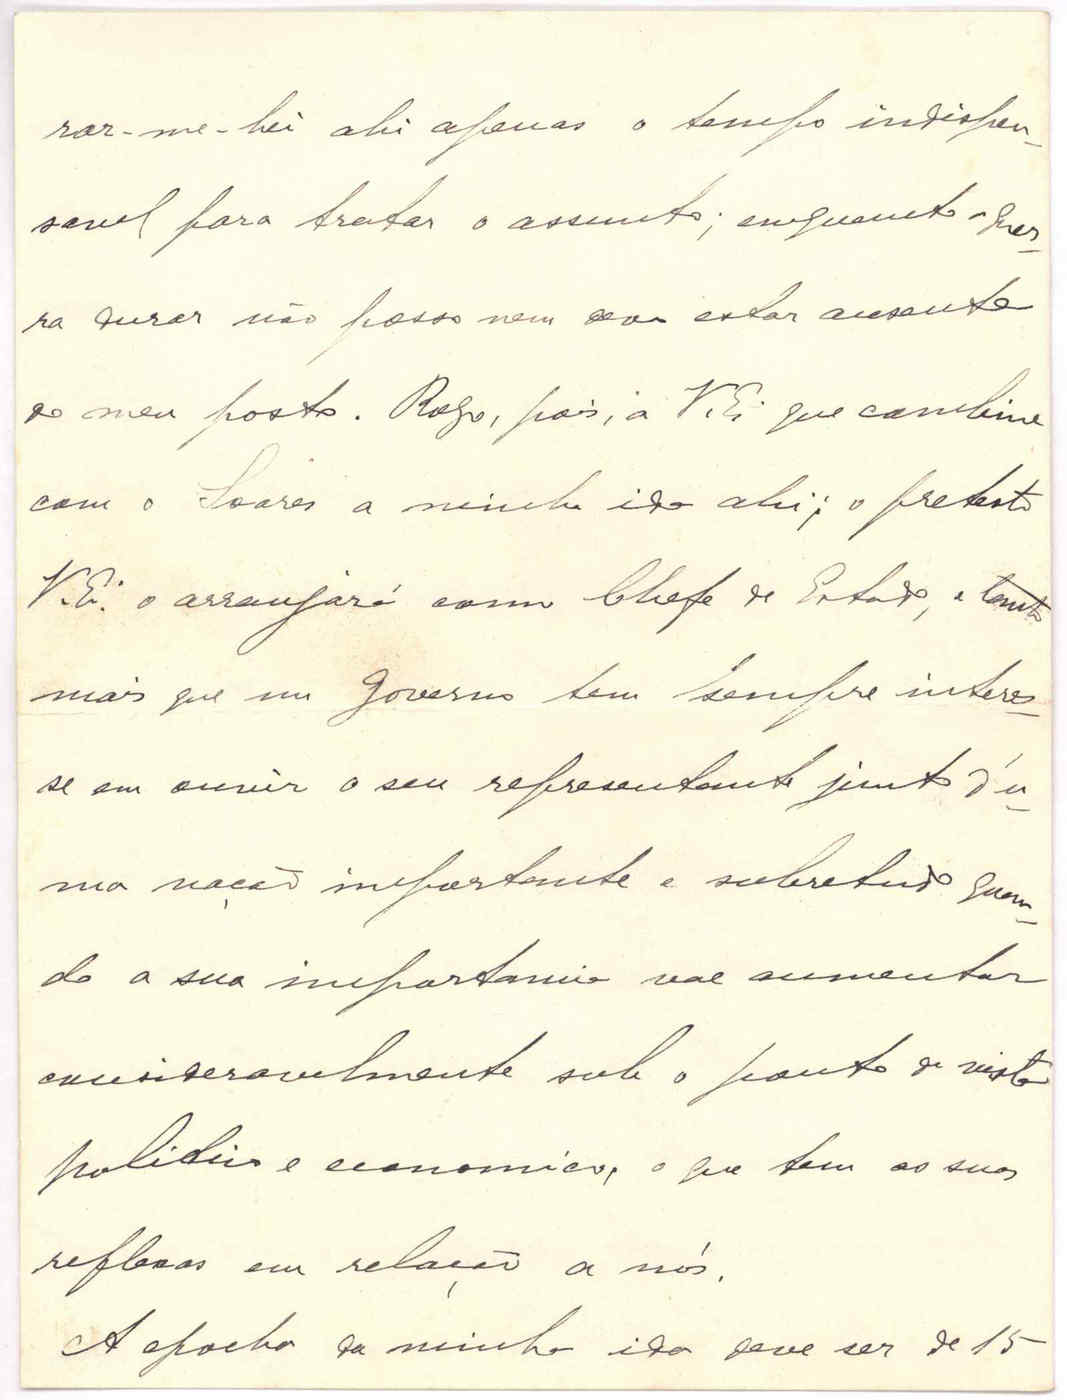 rar-me-hei ahi apenas o tempo indispen-
savel para tratar o assumto; emquanto a guer-
ra durar não posso nem devo estar ausente
do meu posto. Rogo, pois, a V. E. que combine
com o Soares a minha ida ahi; o pretexto
V. E. o arranjará com o Chefe de Estado, e tanto
mais que um Governo tem sempre interes-
se em ouvir o seu representante junto d'u-
ma nação importante e sobretudo quan-
do a sua importancia vae aumentar
consideravelmente sob o ponto de vista
politico e economico, o que tem os seus
reflexos em relação a nós.
A epocha da minha ida deve ser de 15